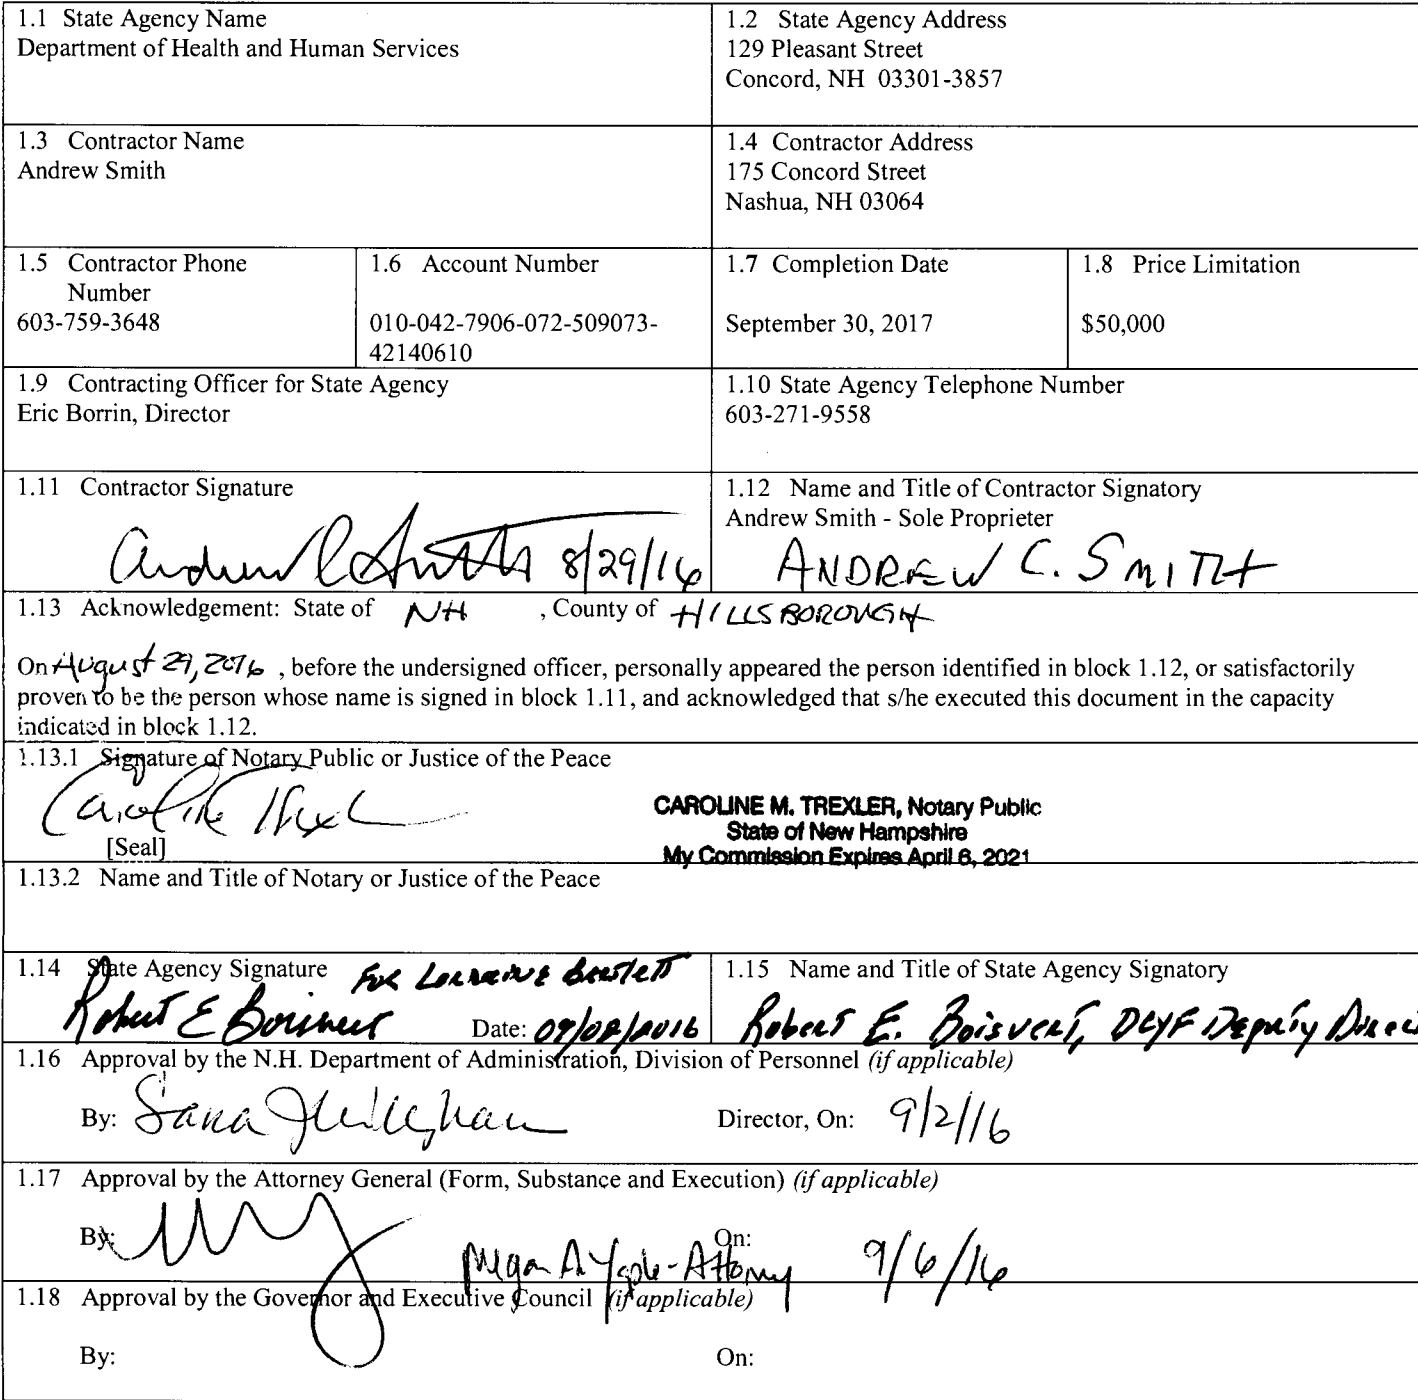 1.1 State Agency Name
Department of Health and Human Services
1.2 State Agency Address
129 Pleasant Street
Concord, NH 03301-3857
1.3 Contractor Name
Andrew Smith
1.4 Contractor Address
175 Concord Street
Nashua, NH 03064
1.5 Contractor Phone
Number
603-759-3648
1.6 Account Number
010-042-7906-072-509073-
42140610
1.7 Completion Date
September 30, 2017
1.8 Price Limitation
$50,000
1.9 Contracting Officer for State Agency
Eric Borrin, Director
1.10 State Agency Telephone Number
603-271-9558
1.11 Contractor Signature
Andrew C Smith 8/29/16
1.12 Name and Title of Contractor Signatory
Andrew Smith - Sole Proprieter
ANDREW C. SMITH
1.13 Acknowledgement: State of NH , County of HILLSBOROUGH
On August 29, 2016 , before the undersigned officer, personally appeared the person identified in block 1.12, or satisfactorily
proven to be the person whose name is signed in block 1.11, and acknowledged that s/he executed this document in the capacity
indicated in block 1.12.
1.13.1 Signature of Notary Public or Justice of the Peace
[Seal]
CAROLINE M. TREXLER, Notary Public
State of New Hampshire
My Commission Expires April 6, 2021
1.13.2 Name and Title of Notary or Justice of the Peace
1.14 State Agency Signature For Lorraine Bartlett
Robert E Boisvert Date: 09/02/2016
1.15 Name and Title of State Agency Signatory
Robert E. Boisvert, DCYF Deputy Direc
1.16 Approval by the N.H. Department of Administration, Division of Personnel (if applicable)
By: Director, On: 9/2/16
1.17 Approval by the Attorney General (Form, Substance and Execution) (if applicable)
By: On: Megan A. Yaple - Attorney 9/6/16
1.18 Approval by the Governor and Executive Council (if applicable)
By: On: